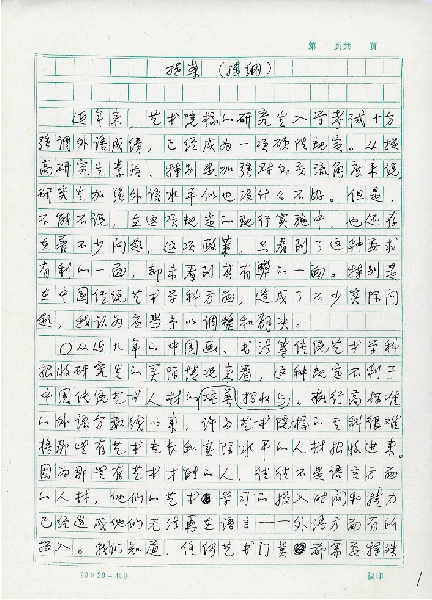 第 页共 页
提案（提纲）
近年来，艺术院校的研究生入学考试十分
强调外语成绩，已经成为一项硬性规定。从提
高研究生素质，特别是加强对外交流角度来说
研究生加强外语水平似也没什么不好。但是，
不能不说，在这项规定的现行实施中，也还存
在着不少问题，这项政策，只看到了这种要求
有利的一面，却未看到其有弊的一面。特别是
在中国传统艺术学科方面，造成了不少实际问
题，我认为应当予以调整和解决。
从近几年的中国画、书法等传统艺术学科
招收研究生的实际情况来看，这种规定不利于
中国传统艺术人材的培养招收与。执行高标准
的外语分数线以来，许多艺术院校的专科很难
将那些有艺术专长和实际水平的人材招收进来。
因为那些有艺术才能的人，往往不是语言方面
的人材，他们的艺术学习的投入时间和精力
已经造成他们无法再在语言——外语方面有所
投入。我们知道，任何艺术门类都需要持续
20×20=400
1